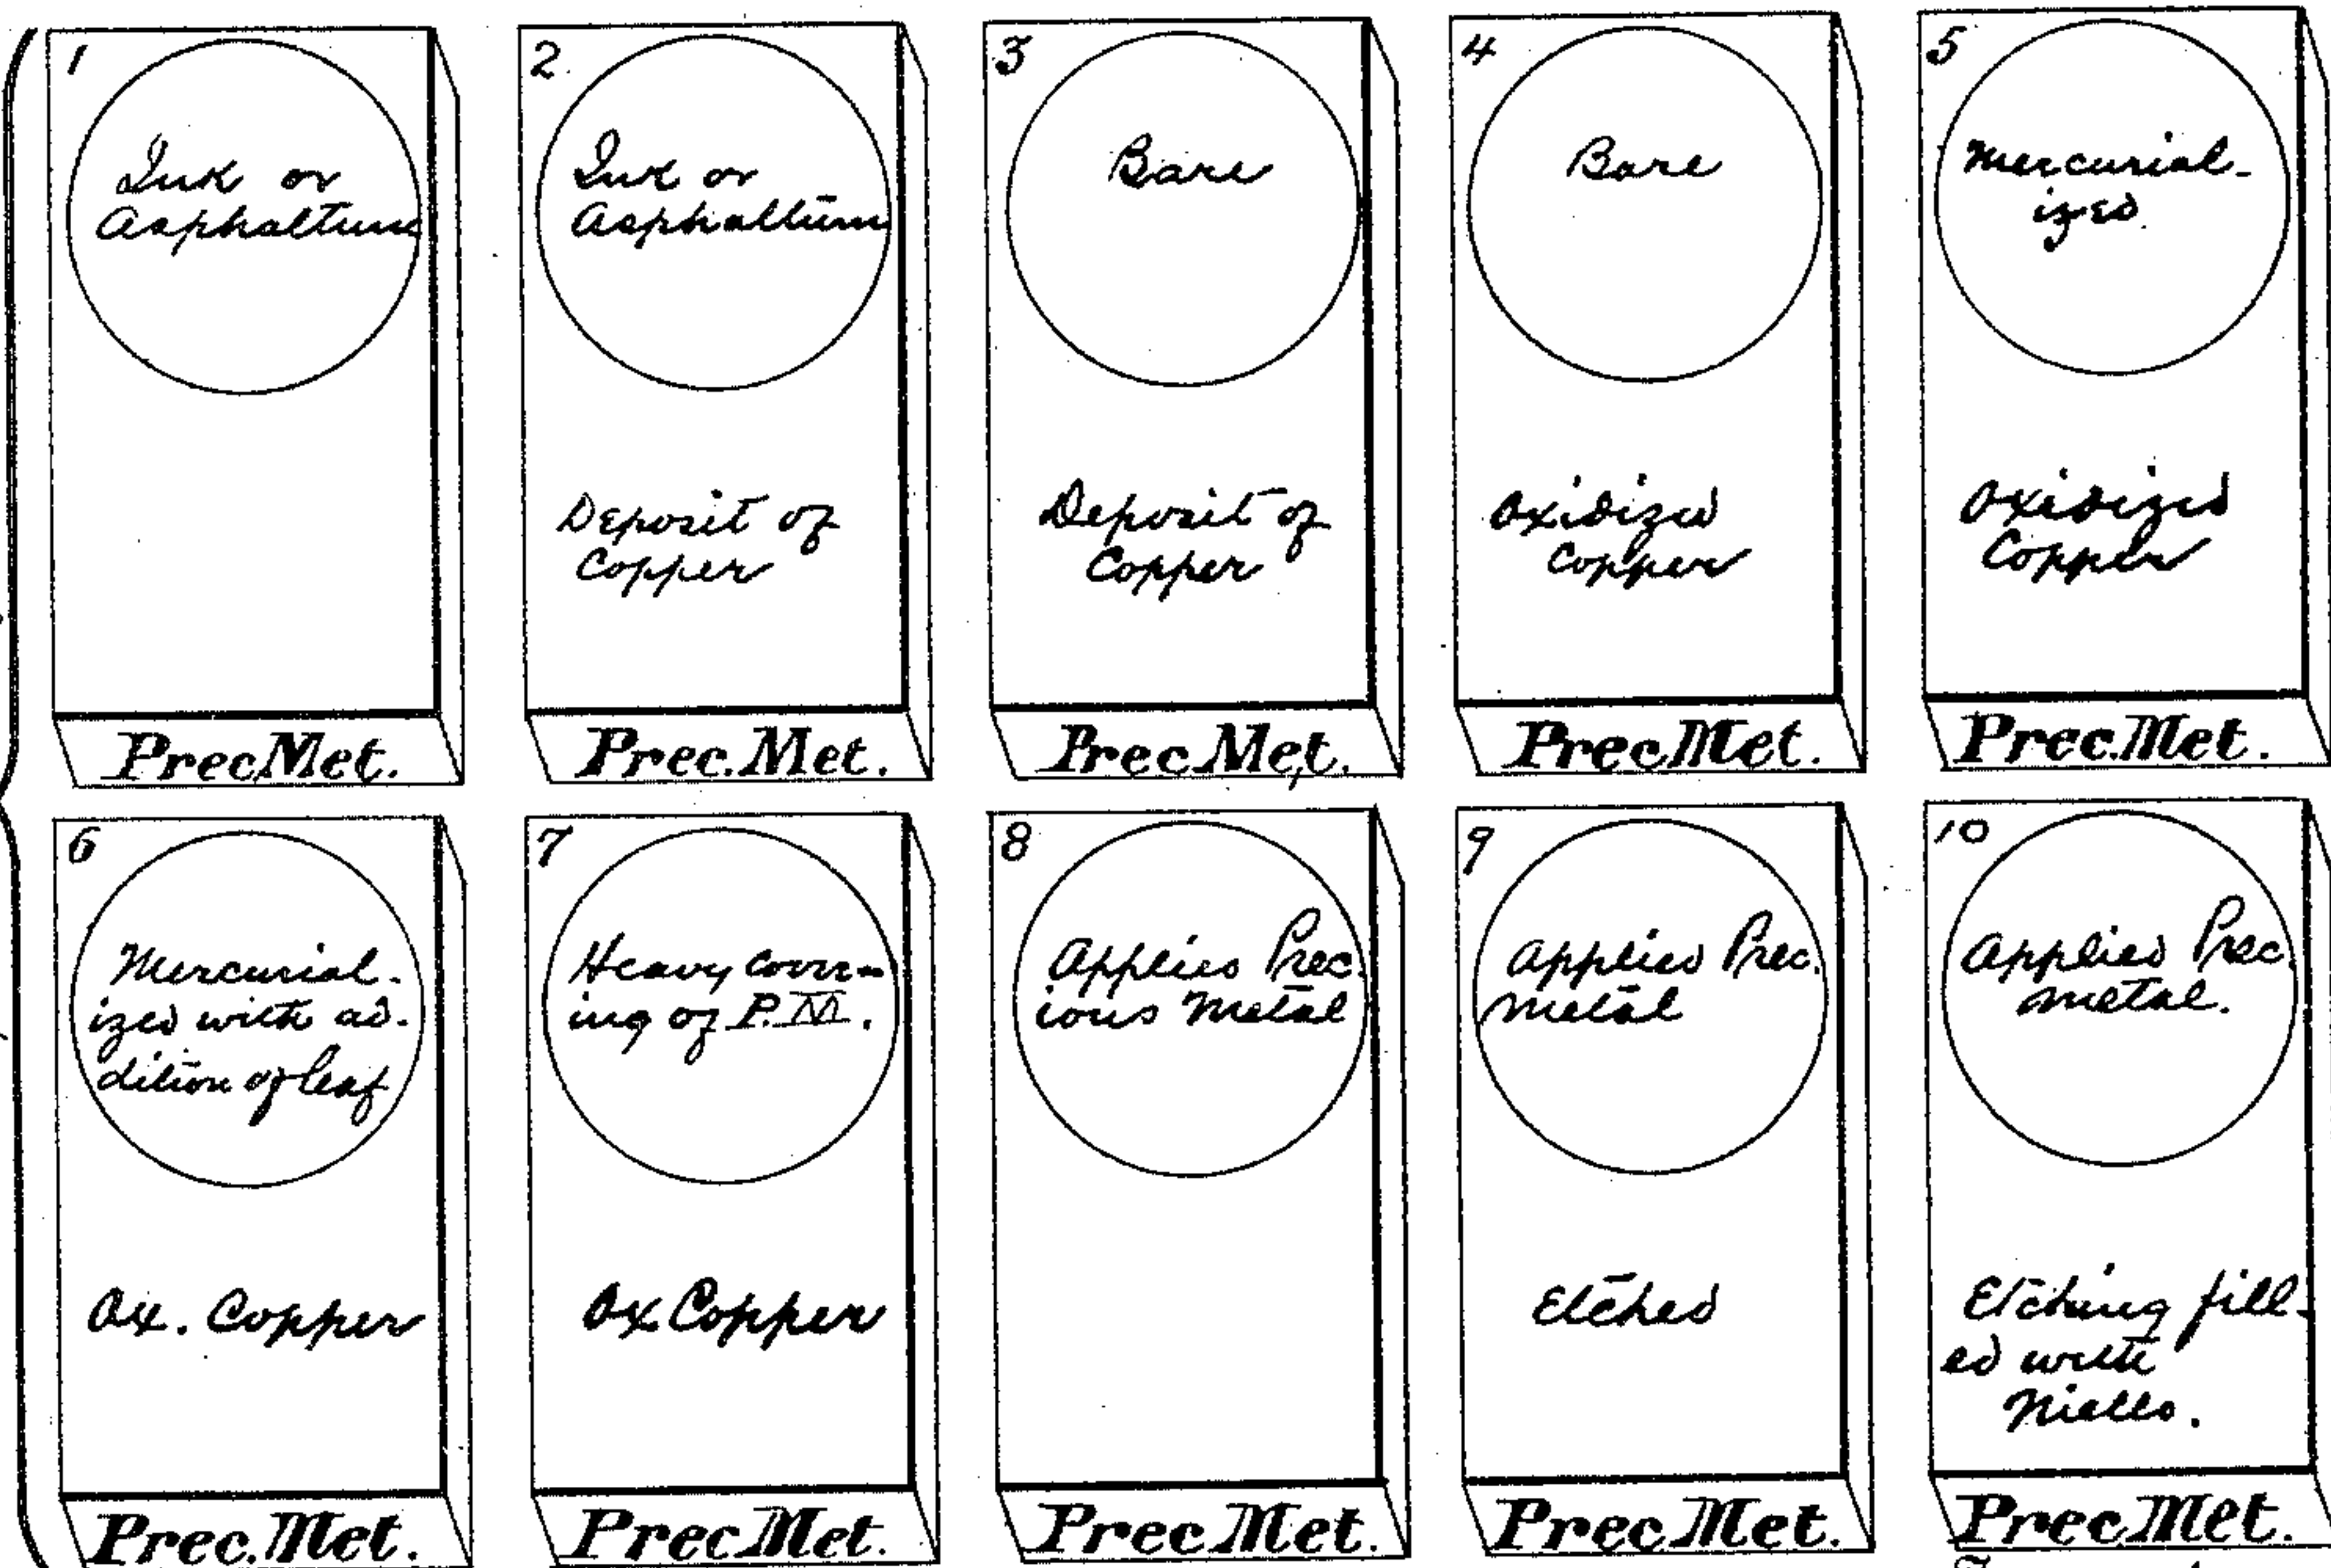 1
Ink or
Asphaltum
Prec Met.
2.
Ink or
Asphaltum
Deposit of
Copper
Prec. Met.
3
Bare
Deposit of
Copper
Prec. Met.
4
Bare
Oxidized
Copper
Prec Met.
5
Mercurial-
ized
Oxidized
Copper
Prec. Met.
6
Mercurial-
ized with ad-
dition of leaf
Ox. Copper
Prec. Met.
7
Heavy cover-
ing of P. M.
Ox Copper
Prec Met.
8
Applied Prec-
ious Metal
Prec Met.
9
Applied Prec.
Metal
Etched
Prec Met.
10
Applied Prec
Metal.
Etching fill-
ed with
Niello.
Prec Met.